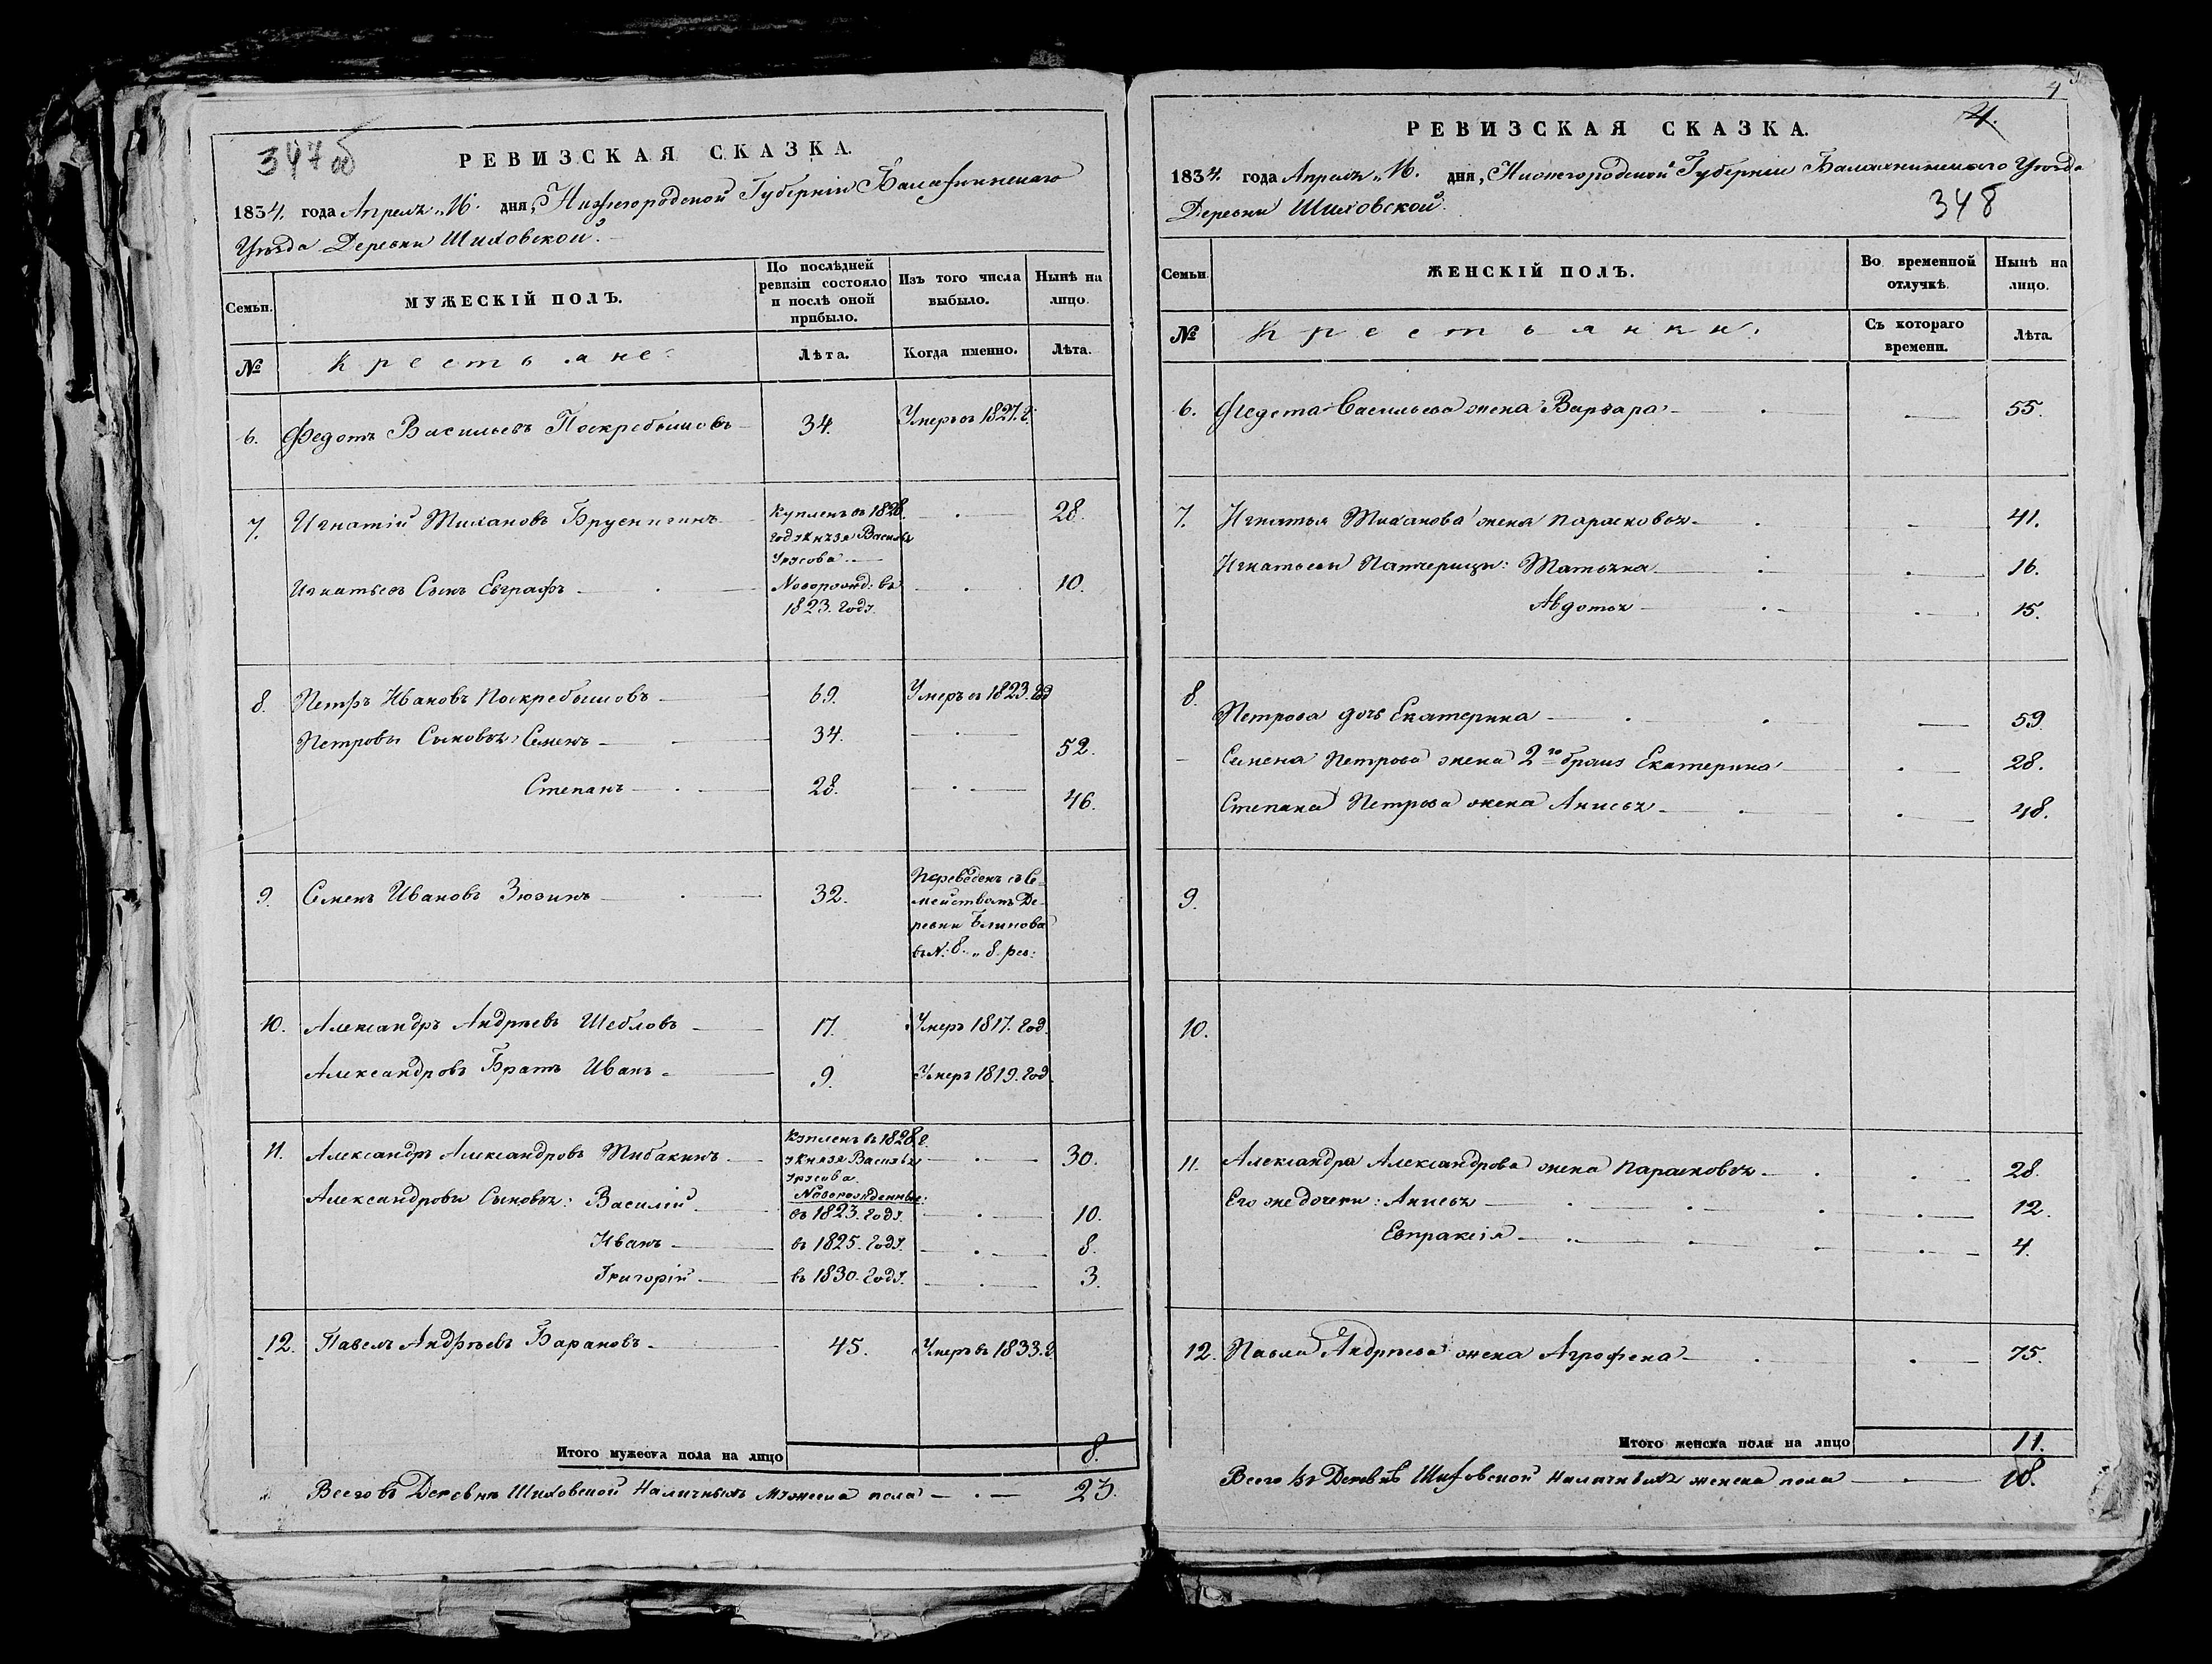 347 об
РЕВИЗСКАЯ СКАЗКА.
1834. года Апреля „16. дня, Нижегородской Губернiи Балахнинскаго
Уѣзда Деревни Шиховской.
Семьи.
МУЖЕСКIЙ ПОЛЪ.
По послѣдней ревизiи состояло и послѣ оной прибыло.
Изъ того числа выбыло.
Нынѣ на лицо.
№
Крестьяне:
Лѣта.
Когда именно.
Лѣта.
6. Федотъ Васильевъ Поскребышовъ 34. Умеръ въ 1827. г.
7. Игнатiй Тихановъ Брусникинъ Купленъ въ 1828. 28.
году Князя Василья
Урусова
Игнатьевъ Сынъ Евграфъ Новорожд: въ 10.
1823. году.
8. Петръ Ивановъ Поскребышовъ 69. Умеръ въ 1823. год
Петровы Сыновья: Семенъ 34. 52.
Степанъ 28. 46.
9. Семенъ Ивановъ Зюзинъ 32. Переведенъ съ Се-
мействомъ Де-
ревни Блинова
въ №: 8. „ 8. рев:
10. Александръ Андрѣевъ Шебловъ 17. Умеръ 1817. год.
Александровъ Братъ Иванъ 9. Умеръ 1819. год.
11. Александръ Александровъ Тибакинъ Купленъ въ 1828. г. 30.
у Князя Василья
Урусова.
Новорожденные:
Александровы Сыновья: Василiй въ 1823. году. 10.
Иванъ въ 1825. году. 8.
Григорiй въ 1830. году. 3.
12. Павелъ Андрѣевъ Барановъ 45. Умеръ въ 1833. г.
Итого мужеска пола на лицо 8.
Всего въ Деревнѣ Шиховской Наличныхъ мужеска пола 23.
4
4.
РЕВИЗСКАЯ СКАЗКА.
1834. года Апреля „16. дня, Нижегородской Губернiи Балахнинскаго Уѣзда
Деревни Шиховской.
348
Семьи.
ЖЕНСКIЙ ПОЛЪ.
Во временной отлучкѣ.
Нынѣ на лицо.
№
Крестьянки:
Съ котораго времени.
Лѣта.
6. Федота Васильева жена Варвара 55.
7. Игнатья Тиханова жена Парасковья 41.
Игнатьевы Патчерицы: Татьяна 16.
Авдотья 15.
8.
Петрова дочь Екатерина 59
Семена Петрова жена 2го брака Екатерина 28.
Степана Петрова жена Анисья 48.
9.
10.
11. Александра Александрова жена Парасковья 28.
Его же дочери: Анисья 12.
Евпраксiя 4.
12. Павла Андрѣева жена Агрофена 75.
Итого женска пола на лицо 11.
Всего въ Деревнѣ Шиховской наличныхъ женска пола 18.